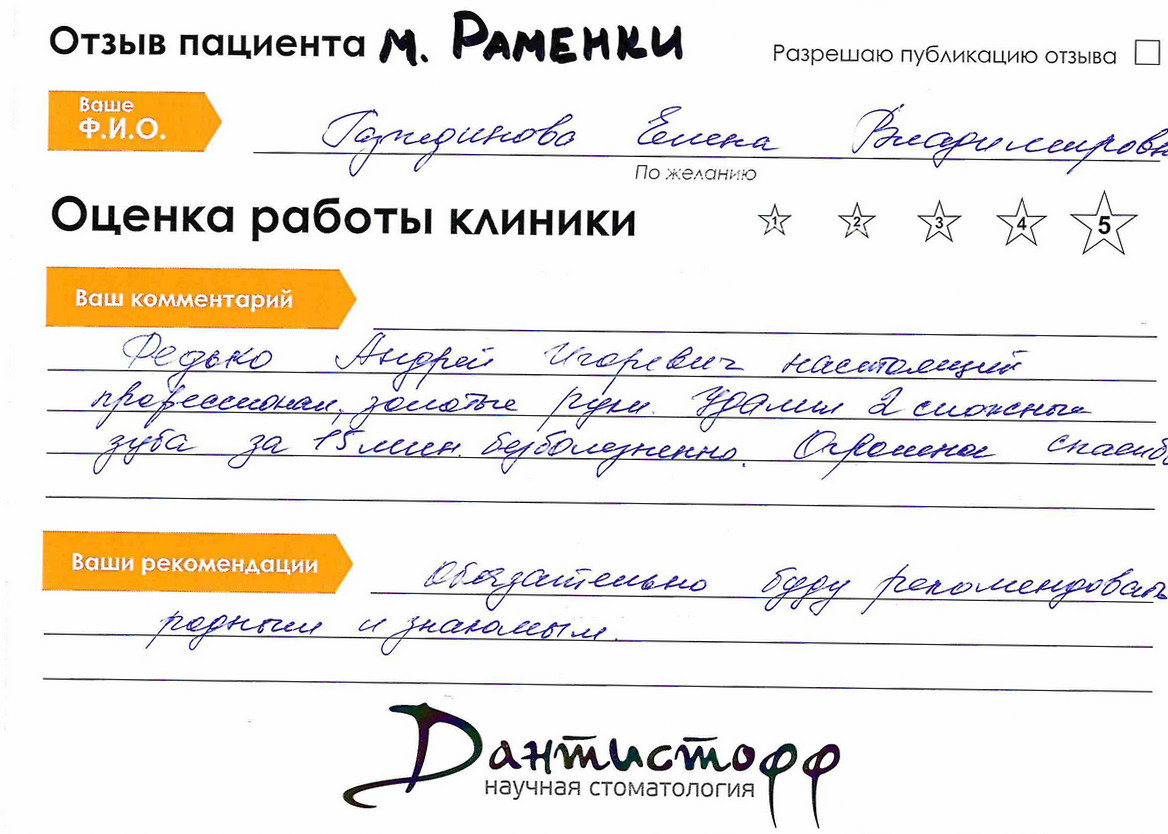 Отзыв пациента м. Раменки
Разрешаю публикацию отзыва
Ваше
Ф.И.О.
Елена Владимировн
По желанию
Оценка работы клиники 1 2 3 4 5
Ваш комментарий
Федько Андрей Игоревич настоящий
профессионал, золотые руки. Удалил 2 сложных
зуба за 15 мин. безболезненно. Огромное спасибо
Ваши рекомендации
Обязательно буду рекомендовать
родным и знакомым.
Дантистофф
научная стоматология